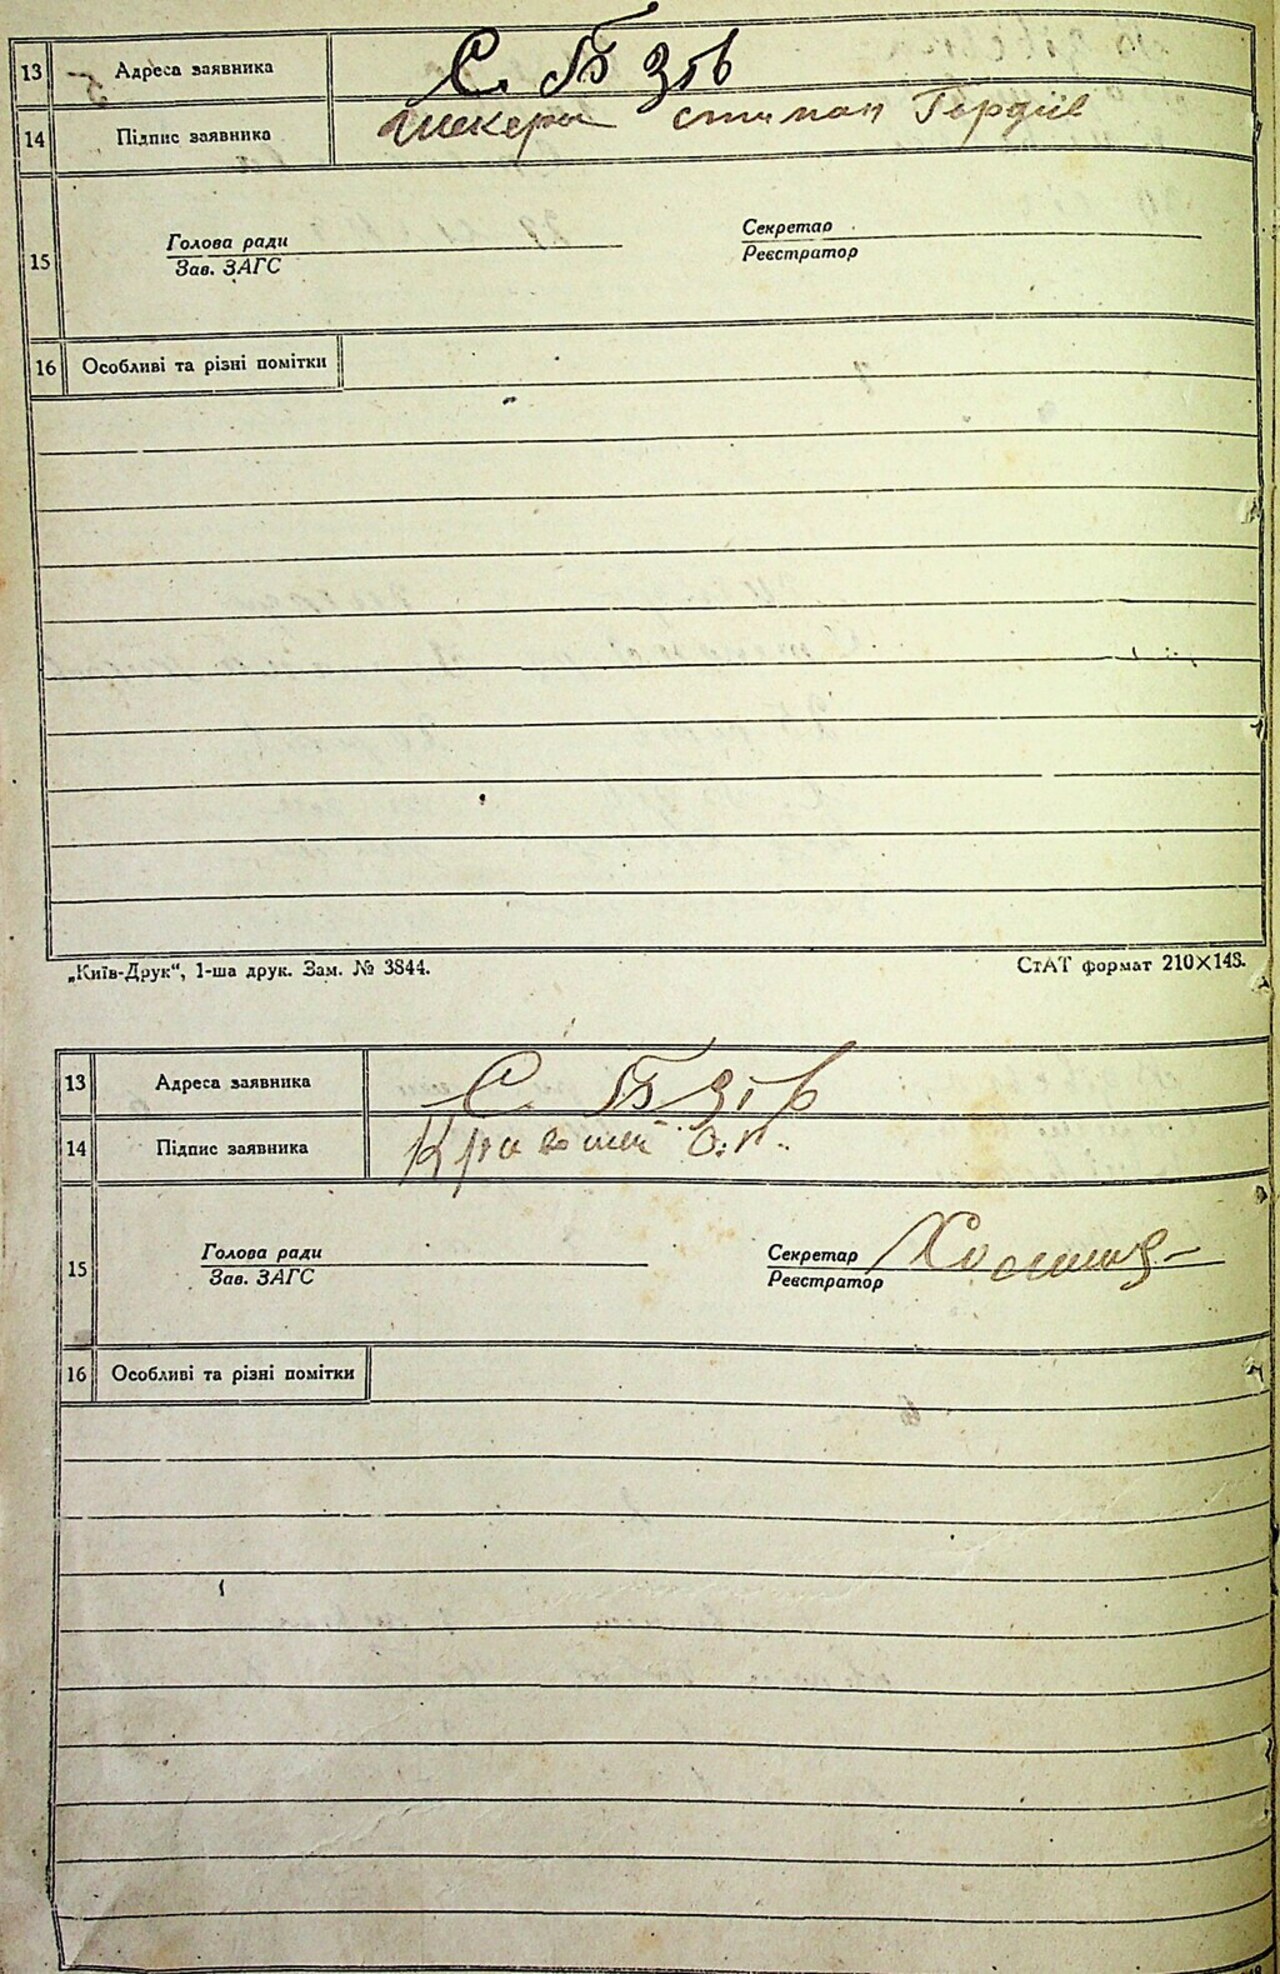 13 Адреса заявника С. Бзів
14 Підпис заявника Шкера стипан Гордіїв
15 Голова ради Секретар
Зав. ЗАГС Реєстратор
16 Особливі та різні помітки
„Київ-Друк“, 1-ша друк. Зам. № 3844. СтАТ формат 210×148.
13 Адреса заявника С. Бзів
14 Підпис заявника О. К.
15 Голова ради Секретар
Зав. ЗАГС Реєстратор
16 Особливі та різні помітки